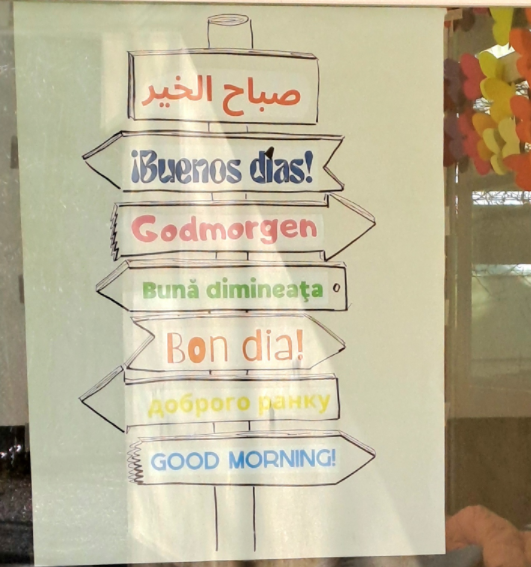 صباح الخير
¡Buenos días!
Godmorgen
Bună dimineaţa
Bon dia!
доброго ранку
GOOD MORNING!